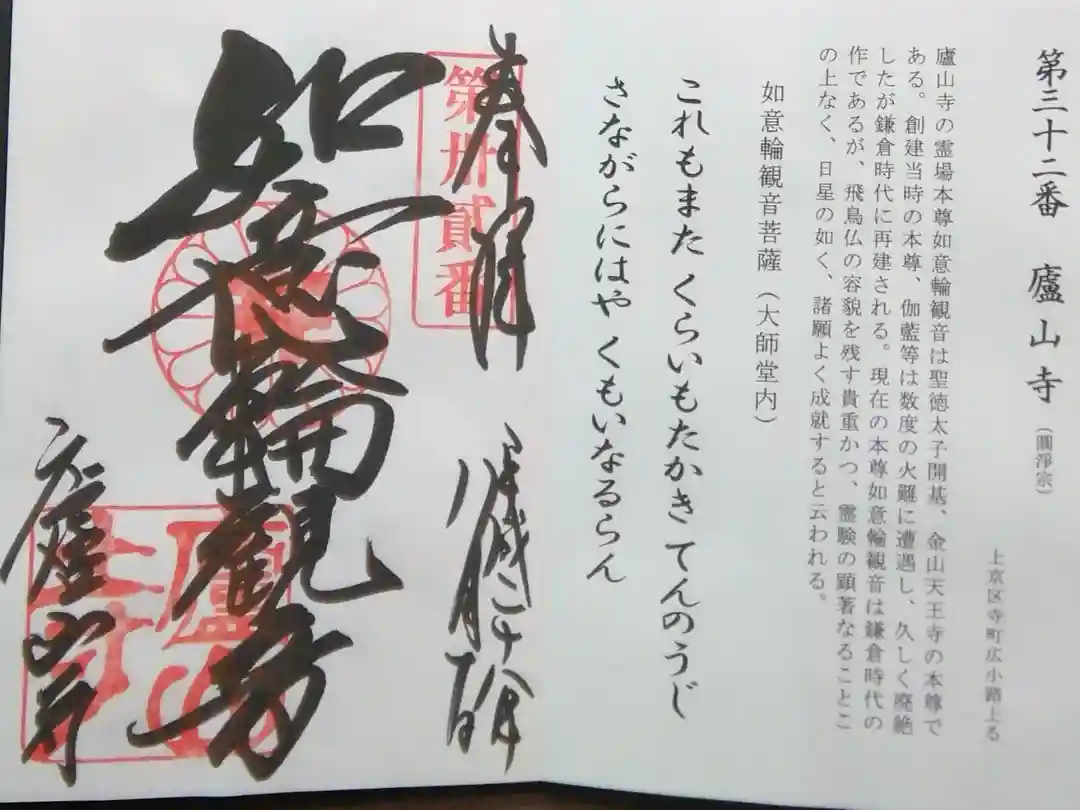 第三十二番 廬山寺(圓淨宗)
上京区寺町広小路上る
廬山寺の霊場本尊如意輪観音は聖徳太子開基、金山天王寺の本尊で
ある。創建当時の本尊、伽藍等は数度の火難に遭遇し、久しく廃絶
したが鎌倉時代に再建される。現在の本尊如意輪観音は鎌倉時代の
作であるが、飛鳥仏の容貌を残す貴重かつ、霊験の顕著なることこ
の上なく、日星の如く、諸願よく成就すると云われる。
如意輪観音菩薩(大師堂内)
これもまた くらいもたかき てんのうじ
さながらにはや くもいなるらん
奉拝
平成二十
八月
第卅貳番
如意輪観音
廬山寺
廬山
寺